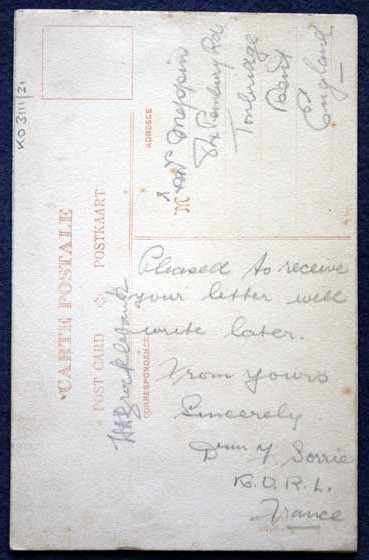 KO 3111/21
CARTE POSTALE
POST CARD
POSTKAART
CORRESPONDANCE
ADRESSE
M
Meppin
Pembury Rd
Tonbridge
Kent
England
Pleased to receive
your letter will
write later.
From yours
Sincerely
Drum Y. Sorrie
K.O.R.L.
France